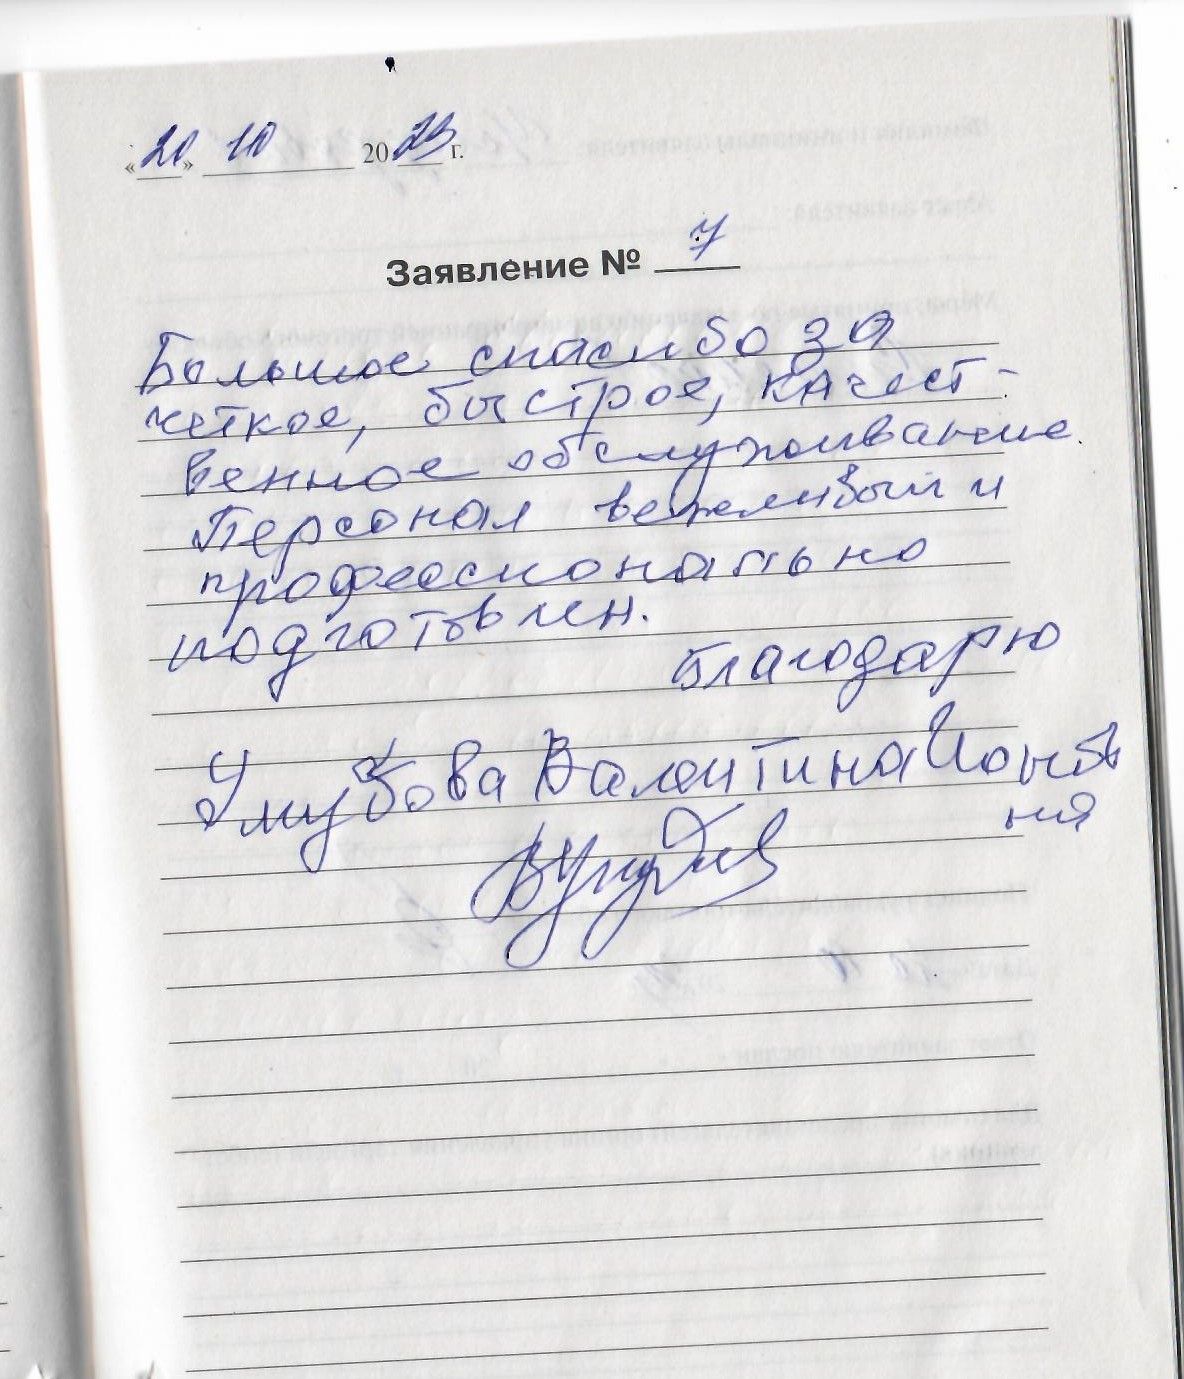 «20» 10 2023 г.
Заявление № 7
Большое спасибо за
четкое, быстрое, качест-
венное обслуживание.
Персонал вежливый и
профессионально
подготовлен.
Благодарю
Валентина